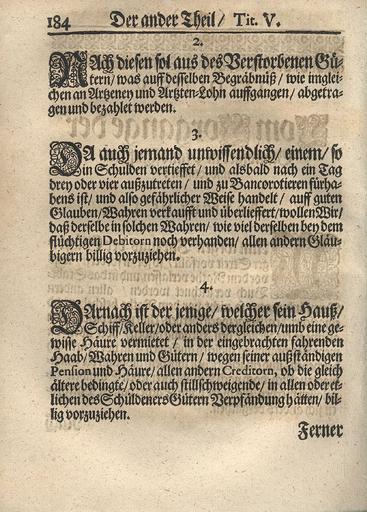 184 Der ander Theil / Tit. V.
2.
NAch diesen sol aus des Verstorbenen Gü-
tern / was auff desselben Begräbnüß / wie imglei-
chen an Artzeney und Artzten-Lohn auffgangen / abgetra-
gen und bezahlet werden.
3.
DA auch jemand unwissendlich / einem / so
in Schulden vertieffet / und alsbald nach ein Tag
drey oder vier außzutreten / und zu Bancorotieren fürha-
bens ist / und also gefährlicher Weise handelt / auff guten
Glauben / Wahren verkaufft und überlieffert / wollen Wir /
daß derselbe in solchen Wahren / wie viel derselben bey dem
flüchtigen Debitorn noch verhanden / allen andern Gläu-
bigern billig vorzuziehen.
4.
DArnach ist der jenige / welcher sein Hauß /
Schiff / Keller / oder anders dergleichen / umb eine ge-
wisse Häure vermietet / in der eingebrachten fahrenden
Haab / Wahren und Gütern / wegen seiner außständigen
Pension und Häure / allen andern Creditorn, ob die gleich
ältere bedingte / oder auch stillschweigende / in allen oder et-
lichen des Schüldeners Gütern Verpfändung hätten / bil-
lig vorzuziehen.
Ferner